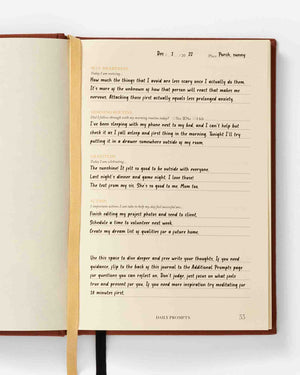 Dec / 1 / 20 22 Place Porch, sunny
SELF-AWARENESS
Today I am noticing...
How much the things that I avoid are less scary once I actually do them.
It's more of the unknown of how that person will react that makes me
nervous. Attacking them first actually equals less prolonged anxiety.
MORNING ROUTINE
Did I follow through with my morning routine today?
I've been sleeping with my phone next to my bed, and I can't help but
check it as I fall asleep and first thing in the morning. Tonight I'll try
putting it in a drawer somewhere outside of my room.
GRATITUDE
Today I am celebrating...
The sunshine! It felt so good to be outside with everyone.
Last night's dinner and game night. I love those!
The text from my sis. She's so good to me. Mom too.
ACTION
3 important actions I can take to help my day feel successful are...
Finish editing my project photos and send to client.
Schedule a time to volunteer next week.
Create my dream list of qualities for a future home.
Use this space to dive deeper and free write your thoughts. If you need
guidance, flip to the back of this journal to the Additional Prompts page
for questions you can reflect on. Don't judge, just focus on what feels
true and present for you. If you need more inspiration try meditating for
10 minutes first.
DAILY PROMPTS
53